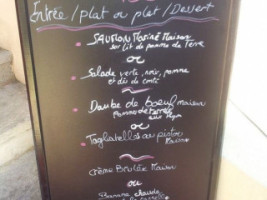 Entrée / plat ou plat / Dessert
Saumon Mariné Maison
sur lit de pomme de Terre
ou
Salade verte, noix, pomme
et dés de comté
Daube de boeuf maison
Pommes
au thym
ou
Tagliatelles au pistou
Maison
Crème Brulée Maison
ou
Banane chaude